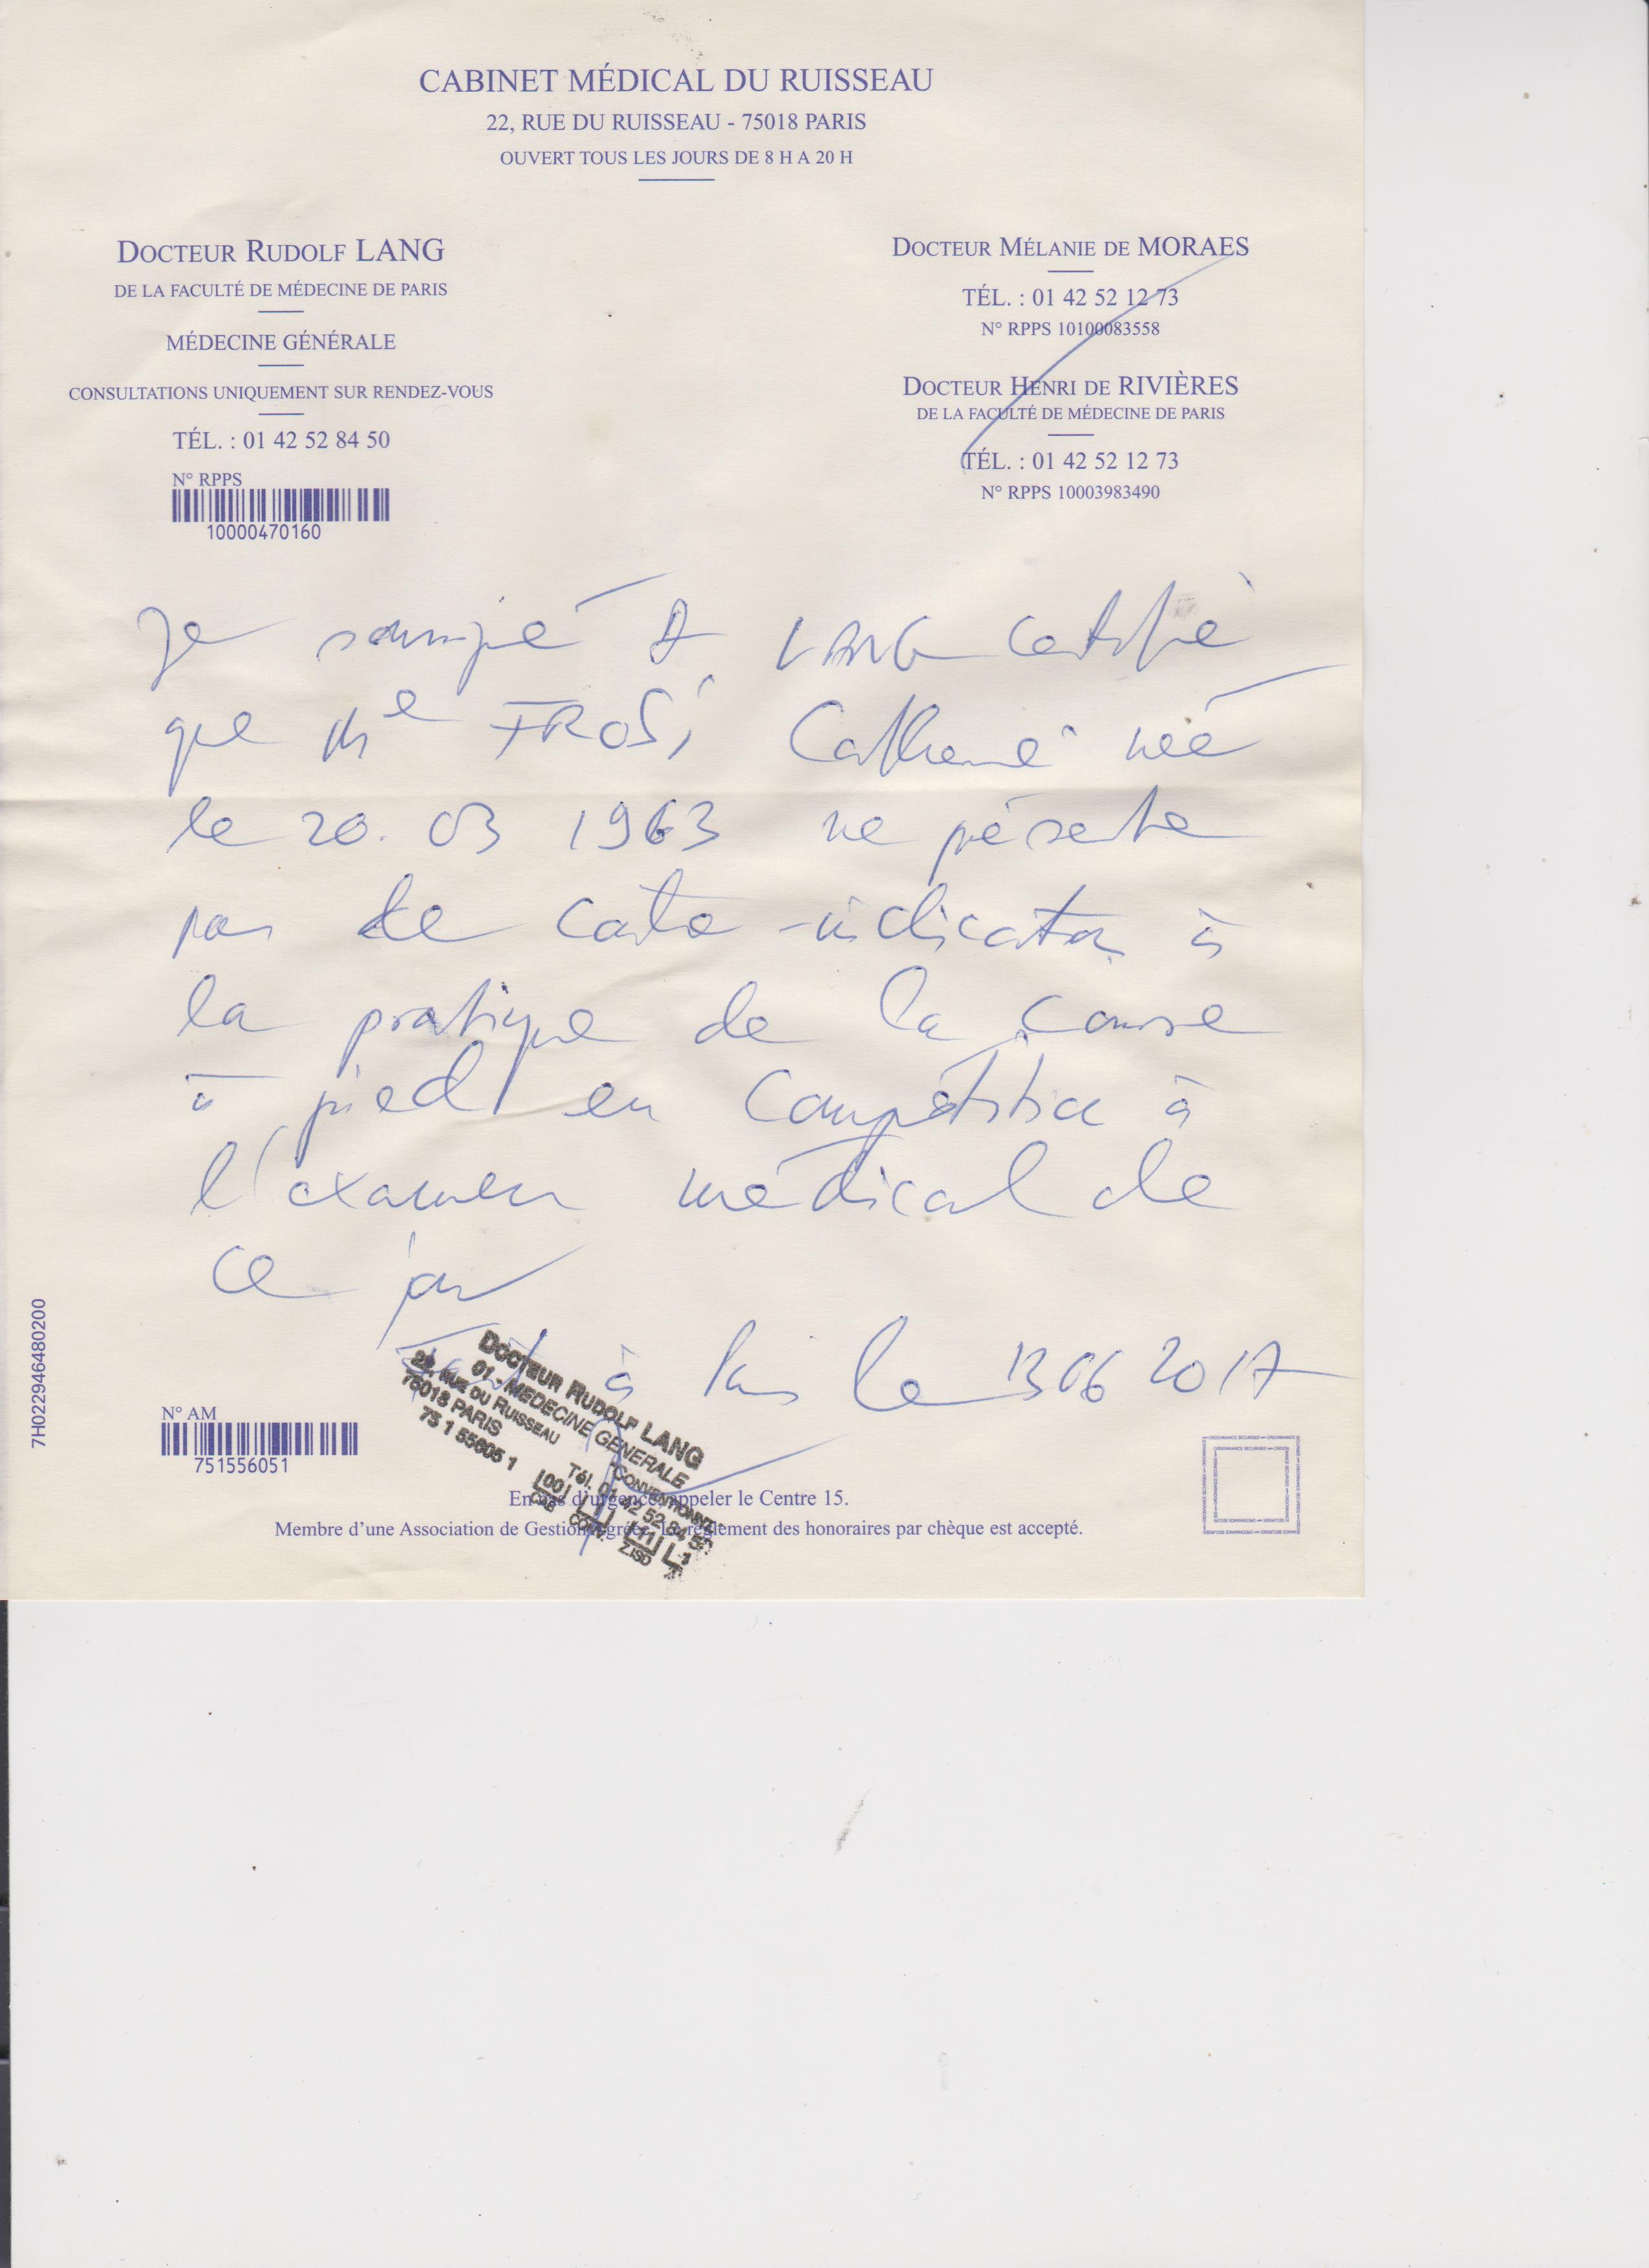 CABINET MÉDICAL DU RUISSEAU
22, RUE DU RUISSEAU - 75018 PARIS
OUVERT TOUS LES JOURS DE 8 H A 20 H
DOCTEUR RUDOLF LANG
DE LA FACULTÉ DE MÉDECINE DE PARIS
MÉDECINE GÉNÉRALE
CONSULTATIONS UNIQUEMENT SUR RENDEZ-VOUS
TÉL. : 01 42 52 84 50
N° RPPS
10000470160
DOCTEUR MÉLANIE DE MORAES
TÉL. : 01 42 52 12 73
N° RPPS 10100083558
DOCTEUR HENRI DE RIVIÈRES
DE LA FACULTÉ DE MÉDECINE DE PARIS
TÉL. : 01 42 52 12 73
N° RPPS 10003983490
Je soussigné Dr LANG certifie
que Me FROSI Catherine née
le 20. 03 1963 ne présente
pas de contre-indication à
la pratique de la course
à pied en compétition à
l'examen médical de
ce jour
Fait à Paris le 13 06 2017
7H022946480200
N° AM
751556051
DOCTEUR RUDOLF LANG
01 - MEDECINE GENERALE
22, RUE DU RUISSEAU
75018 PARIS
75 1 55605 1
CONVENTIONNÉ
Tél. 01 42 52 84 50
En cas d'urgence, appeler le Centre 15.
Membre d'une Association de Gestion agréée. Le règlement des honoraires par chèque est accepté.